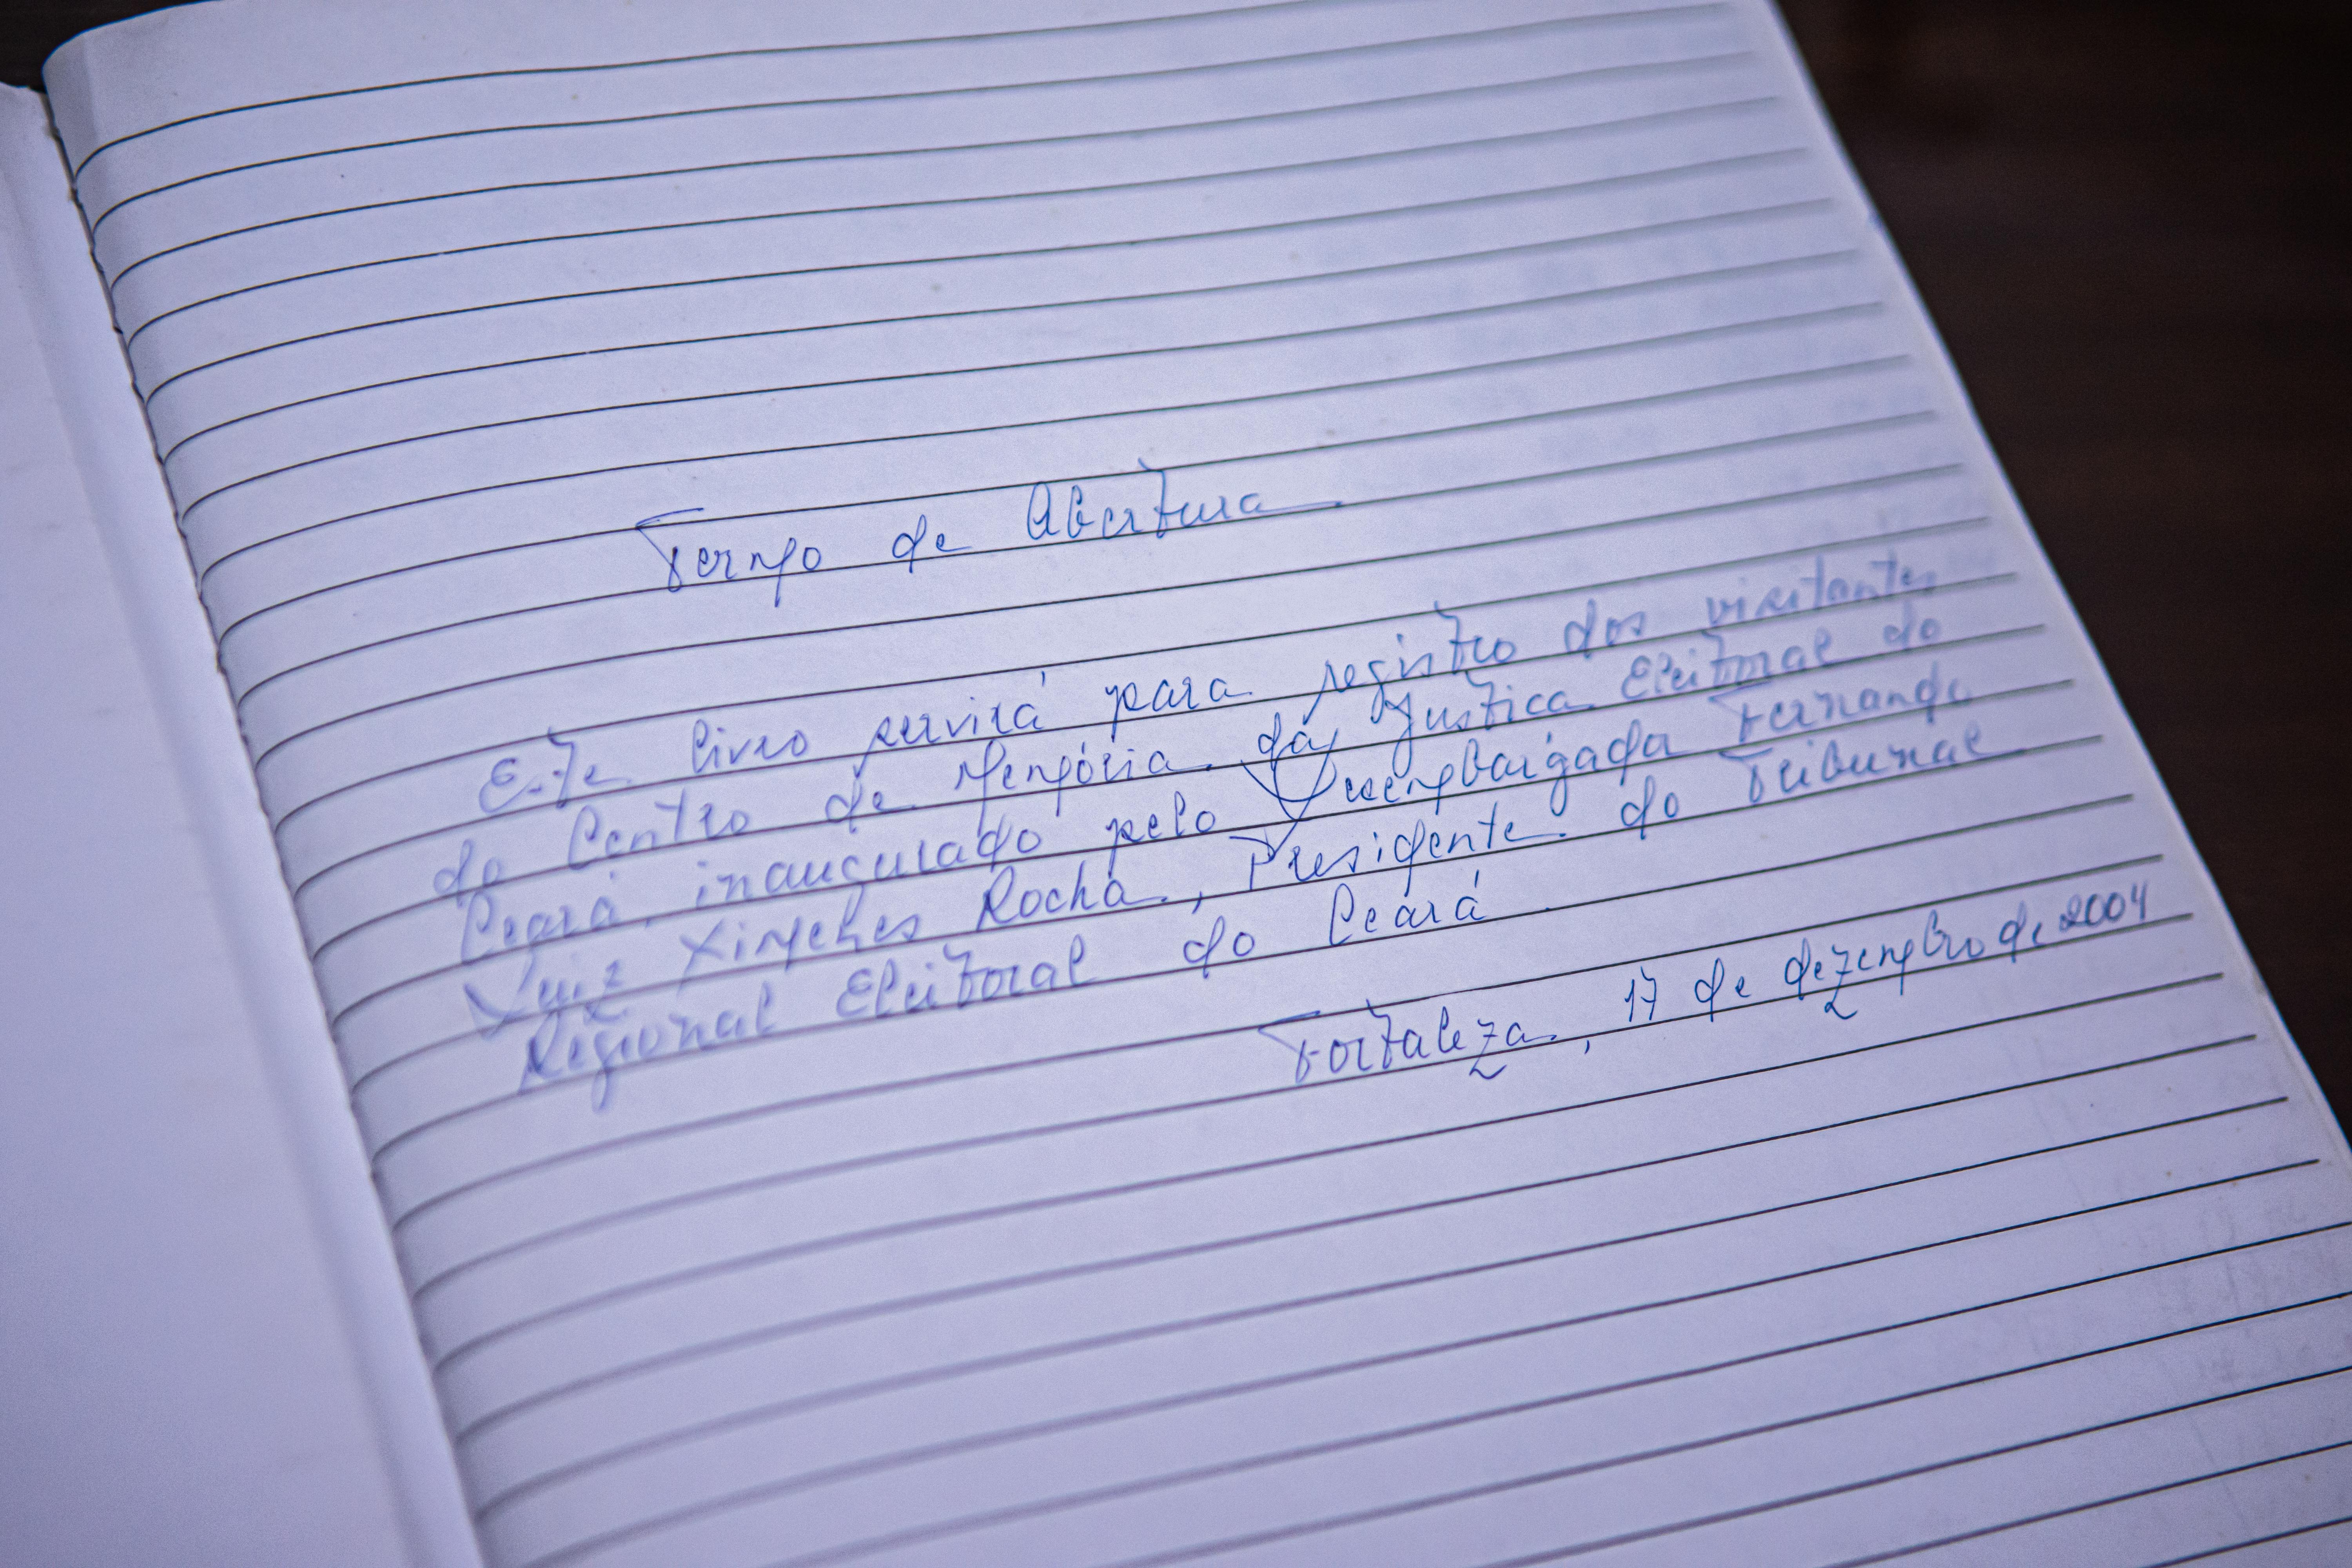 Termo de Abertura
Este livro servirá para registro dos visitantes
do Centro de Memória da Justiça Eleitoral do
Ceará, inaugurado pelo Desembargador Fernando
Luiz Ximenes Rocha, Presidente do Tribunal
Regional Eleitoral do Ceará.
Fortaleza, 17 de dezembro de 2004